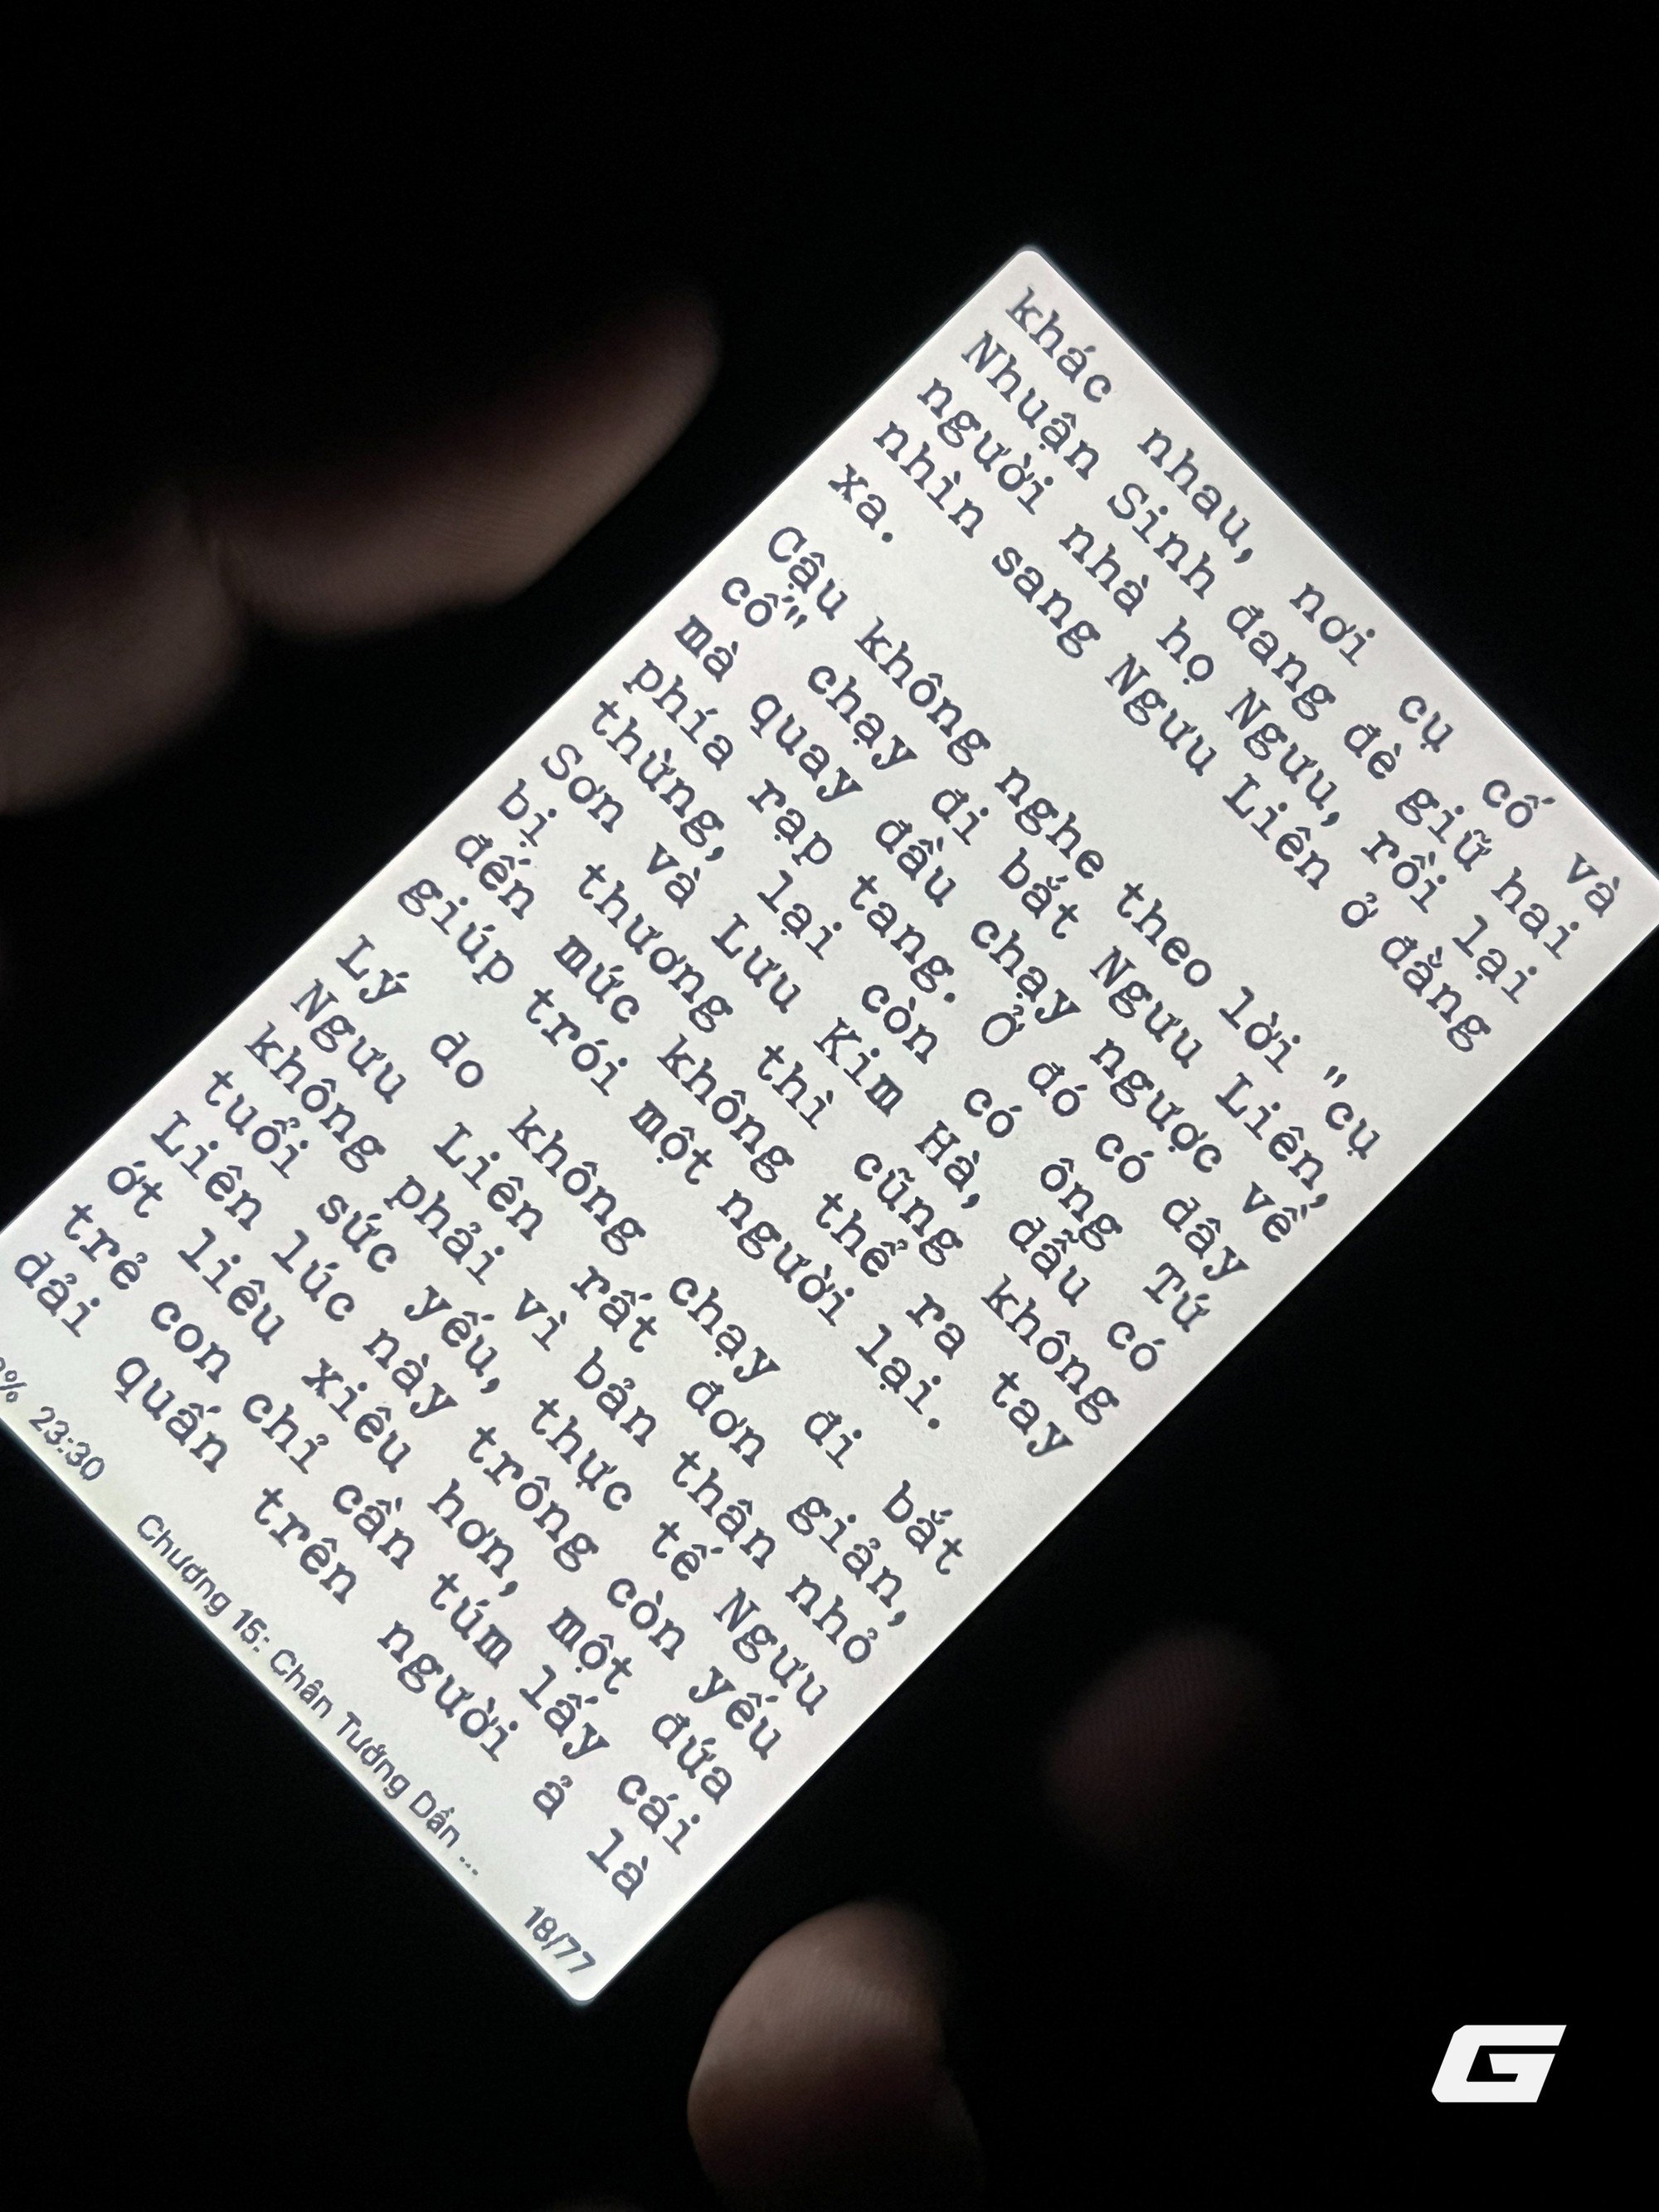 khác nhau, nơi cụ cố và
Nhuận Sinh đang đè giữ hai
người nhà họ Ngưu, rồi lại
nhìn sang Ngưu Liên ở đằng
xa.
Cậu không nghe theo lời "cụ
cố" chạy đi bắt Ngưu Liên,
mà quay đầu chạy ngược về
phía rạp tang. Ở đó có dây
thừng, lại còn có ông Tứ
Sơn và Lưu Kim Hà, dẫu có
bị thương thì cũng không
đến mức không thể ra tay
giúp trói một người lại.
Lý do không chạy đi bắt
Ngưu Liên rất đơn giản,
không phải vì bản thân nhỏ
tuổi sức yếu, thực tế Ngưu
Liên lúc này trông còn yếu
ớt liêu xiêu hơn, một đứa
trẻ con chỉ cần túm lấy cái
dải quấn trên người ả là
% 23:30 Chương 15: Chân Tướng Dần ... 18/77
G